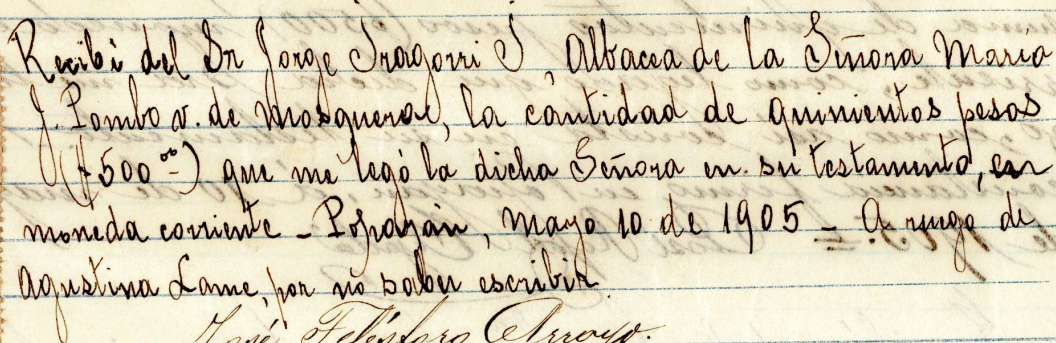 Recibi del Sr Jorge Iragorri I, Albacea de la Señora María
J. Pombo v. de Mosquera, la cantidad de quinientos pesos
($500 00) que me legó la dicha Señora en su testamento, en
moneda corriente - Popayán, Mayo 10 de 1905 - A ruego de
Agustina Lame, por no saber escribir.
José Telésforo Arroyo.